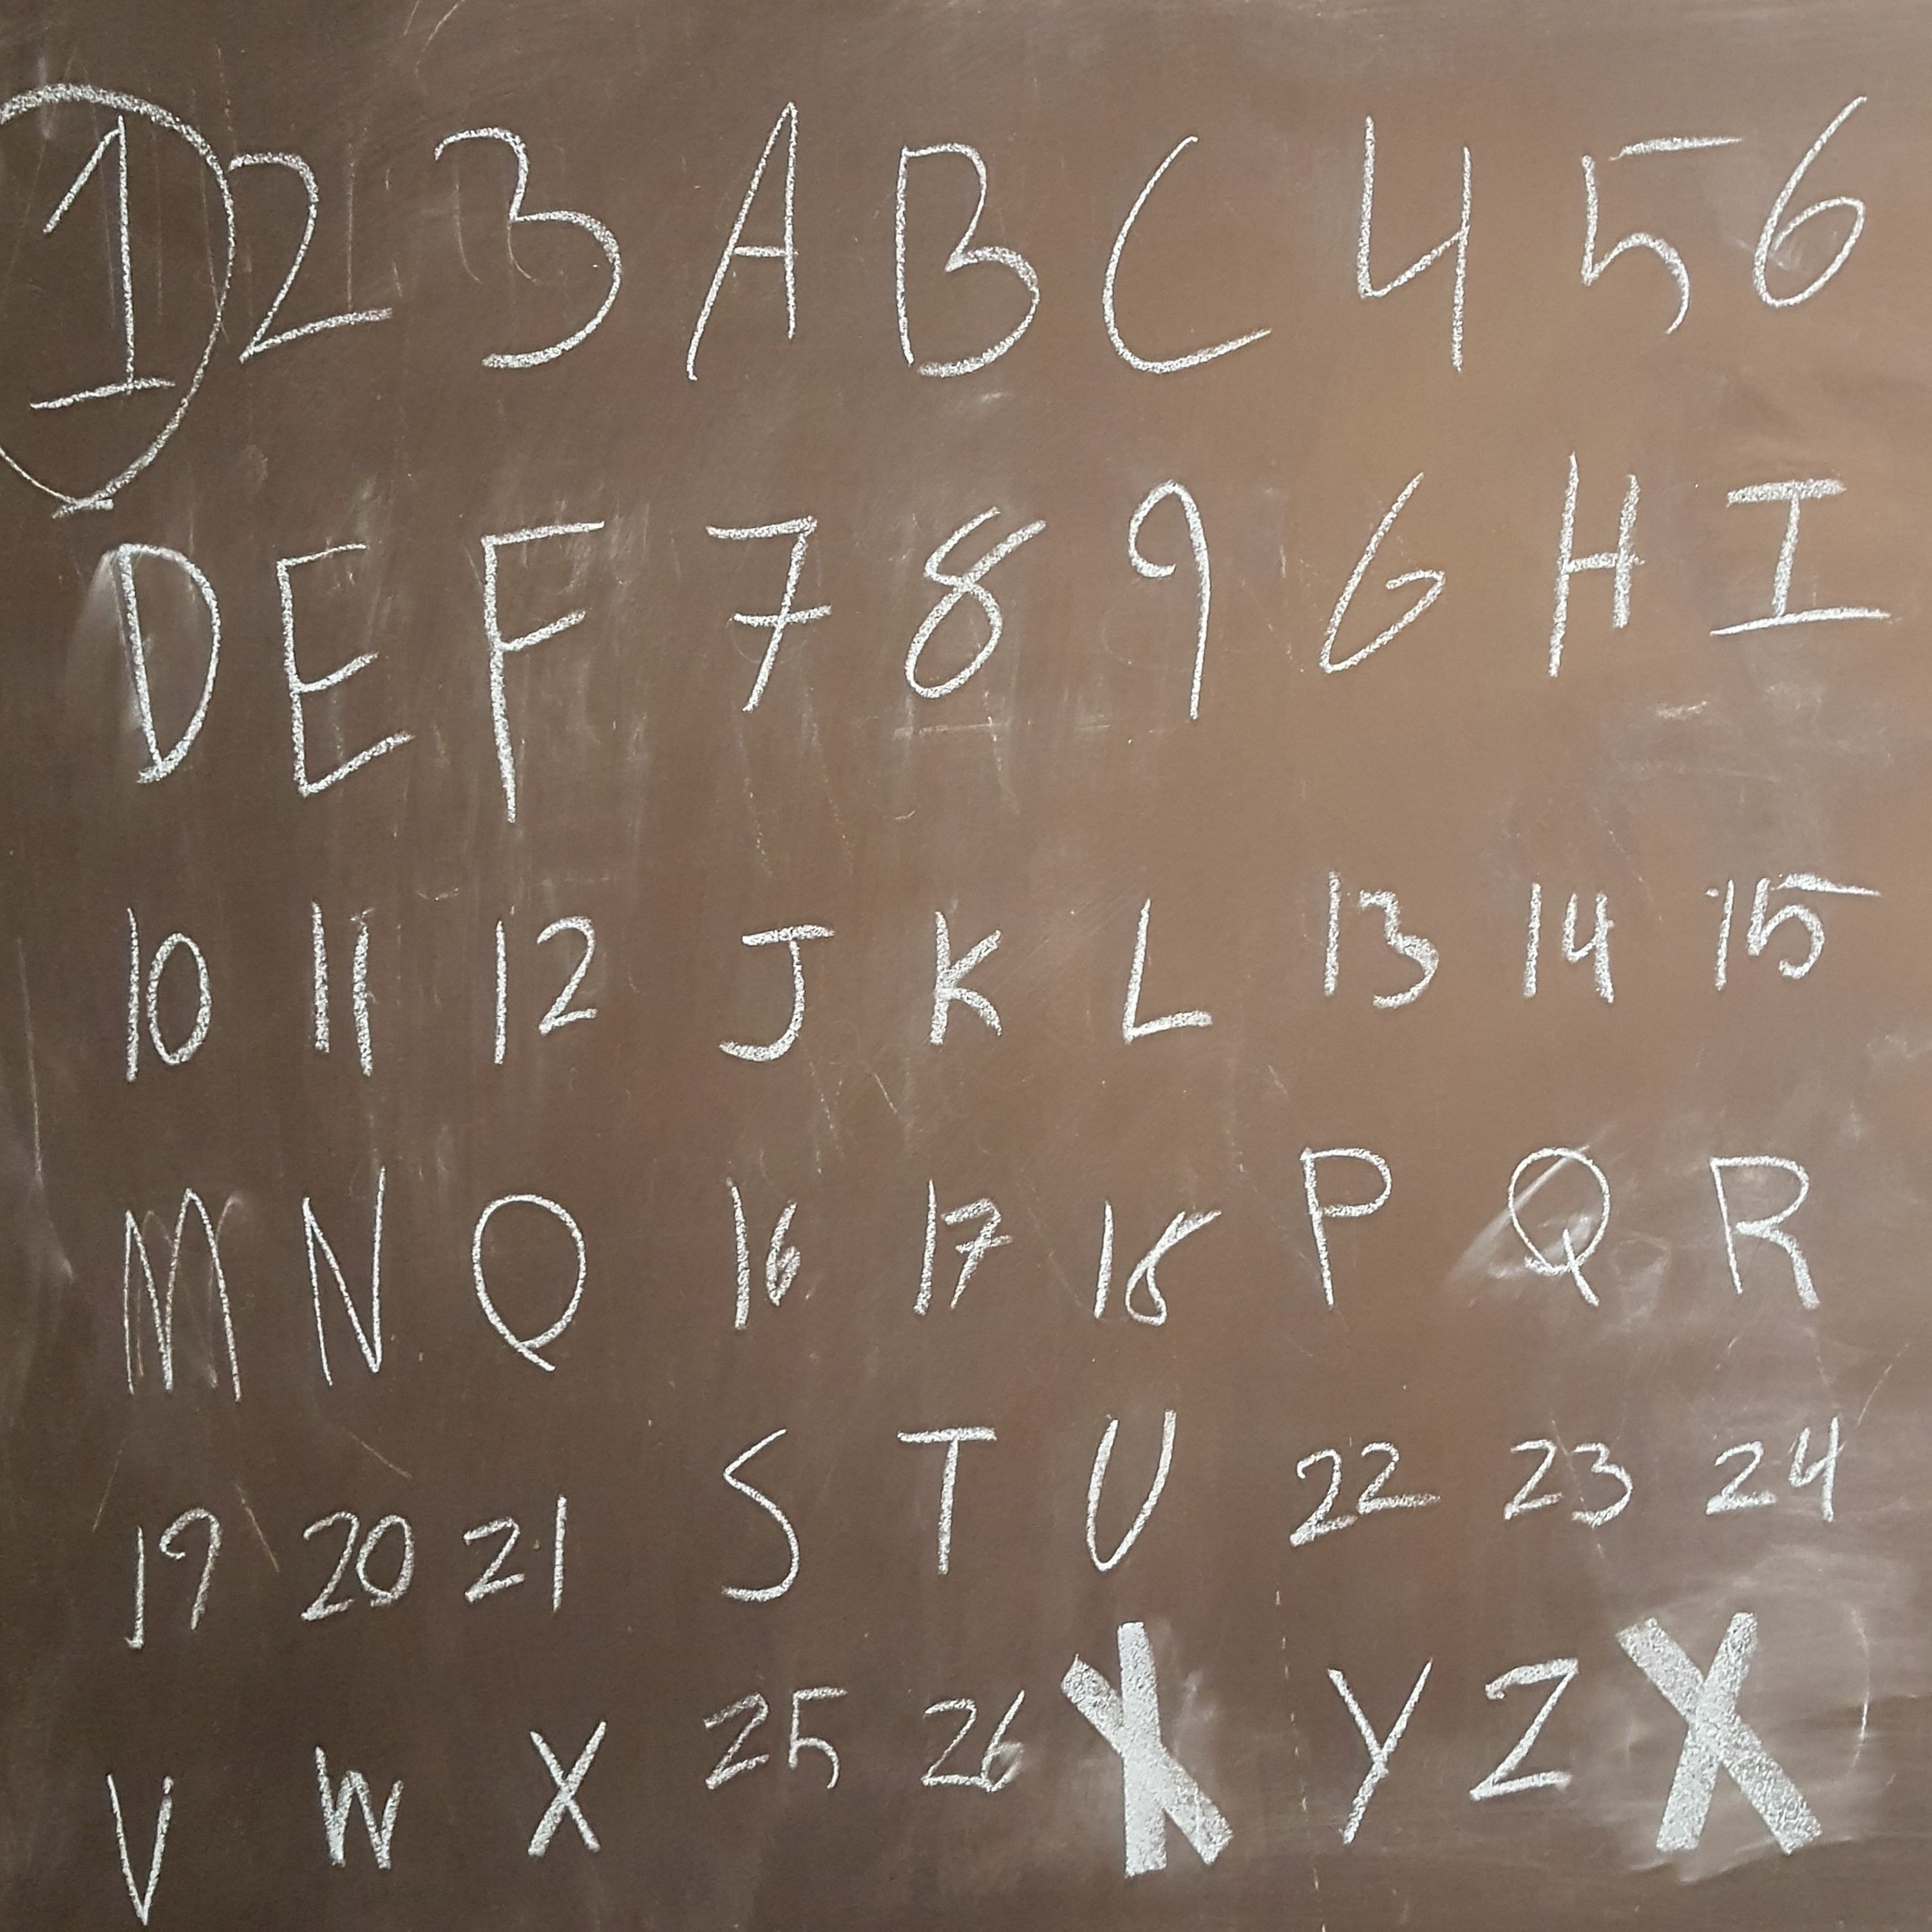 1 2 3 A B C 4 5 6
D E F 7 8 9 G H I
10 11 12 J K L 13 14 15
M N O 16 17 18 P Q R
19 20 21 S T U 22 23 24
V W X 25 26 X Y Z X